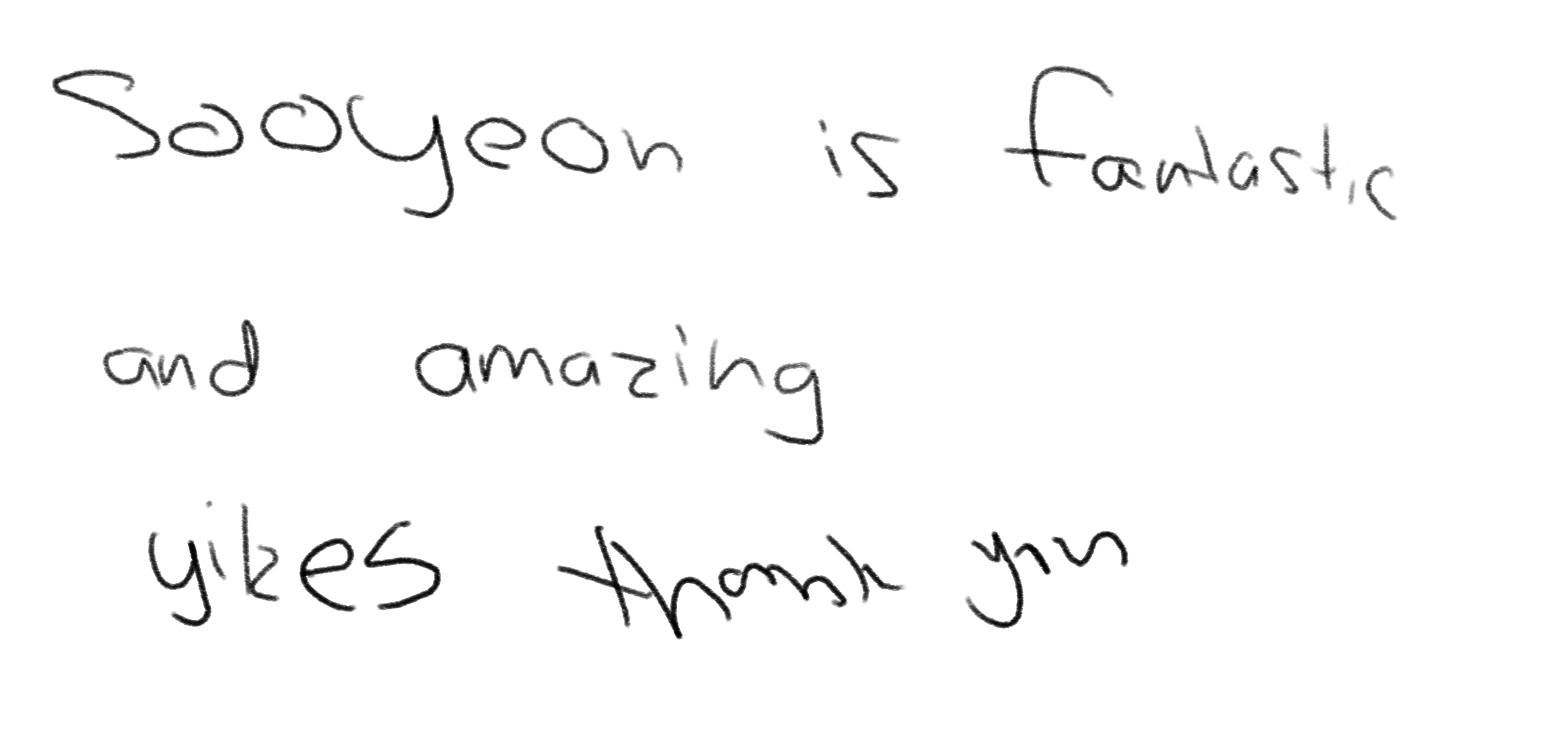 Sooyeon is fantastic
and amazing
yikes thank you